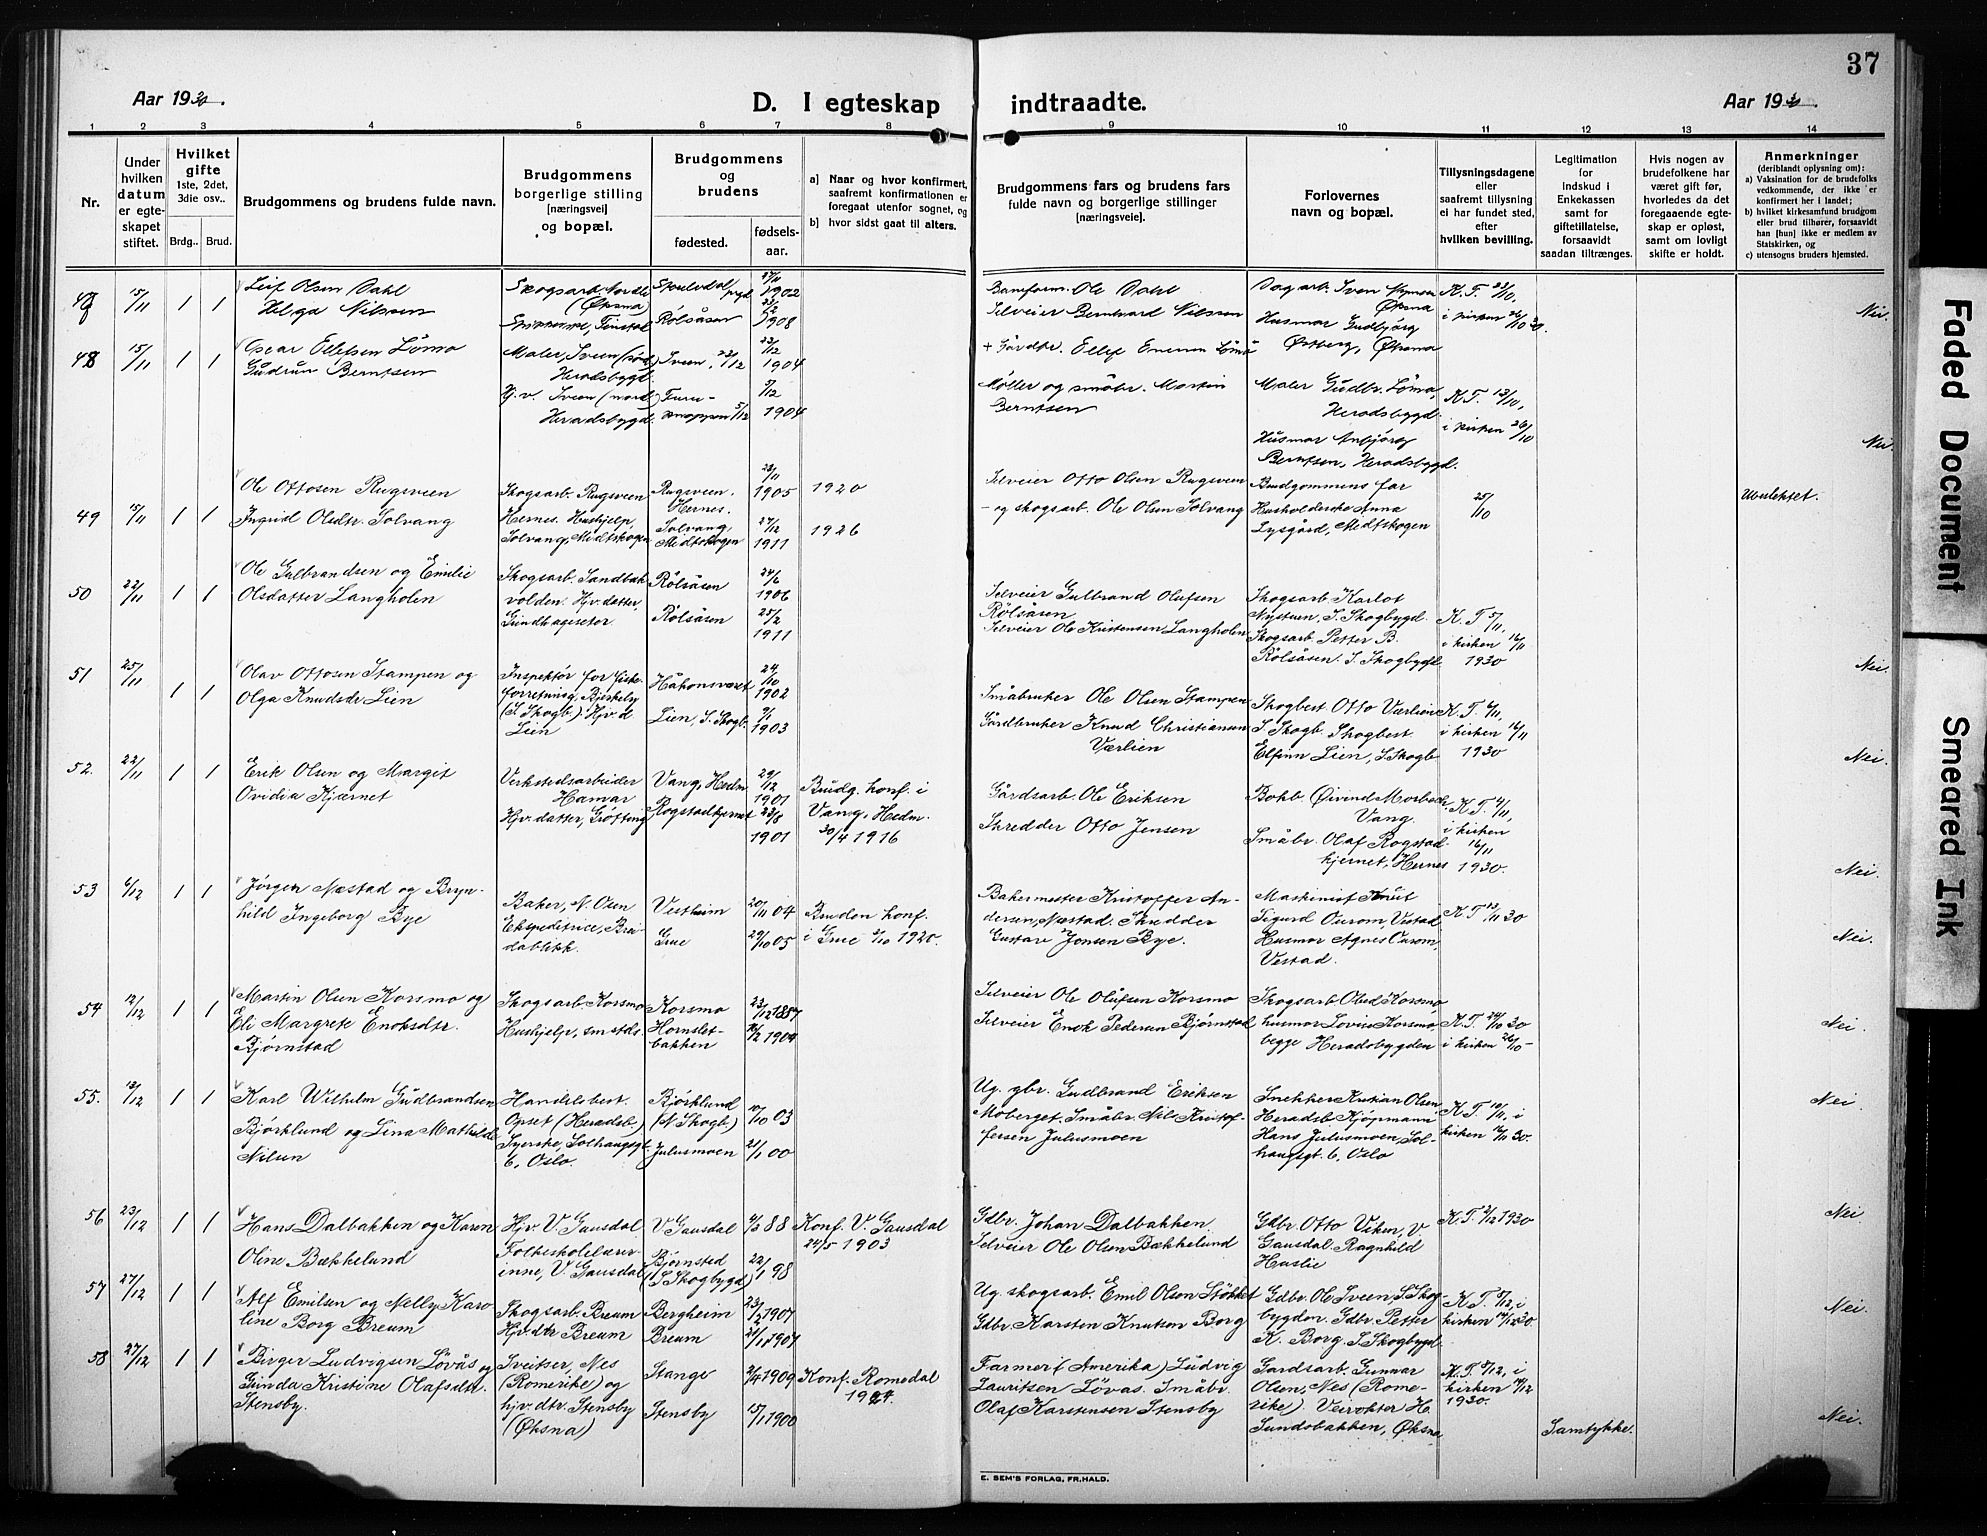 37
Aar 1930.
D. I egteskap indtraadte.
Aar 1930.
1 2 3 4 5 6 7 8 9 10 11 12 13 14
Nr.
Under hvilken datum er egteskapet stiftet.
Hvilket gifte 1ste, 2det, 3die osv..
Brdg.. Brud.
Brudgommens og brudens fulde navn.
Brudgommens borgerlige stilling [næringsvei] og bopæl.
Brudgommens og brudens
fødested.
fødselsaar.
a) Naar og hvor konfirmert, saafremt konfirmationen er foregaat utenfor sognet, og
b) hvor sidst gaat til alters.
Brudgommens fars og brudens fars fulde navn og borgerlige stillinger [næringsveie].
Forlovernes navn og bopæl.
Tillysningsdagene eller saafremt tillysning ei har fundet sted, efter hvilken bevilling.
Legitimation for indskud i Enkekassen samt for giftetillatelse, forsaavidt saadan tiltrænges.
Hvis nogen av brudefolkene har været gift før, hvorledes da det foregaaende egteskap er opløst, samt om lovligt skifte er holdt.
Anmerkninger (deriblandt oplysning om): a) Vaksination for de brudefolks vedkommende, der ikke er konfirmert her i landet; b) hvilket kirkesamfund brudgom eller brud tilhører, forsaavidt han [hun] ikke er medlem av Statskirken, og c) utensogns bruders hjemsted.
47 15/11 1 1
Leif Olsen Dahl
Helga Nilssen
(Øksna)
1902
Rølsåsen
1908
Baneform. Ole Dahl
Selveier Bernhard Nilssen
Husmor Gudbjørg
Østberg, Øksna
K. T. 23/10,
i kirken 26/10 30.
Nei.
48 15/11 1 1
Oscar Ellefsen Lømo
Gudrun Berntsen
Maler, Sveen (nord)
Heradsbygd.
Hj.v. Sveen (nord)
Heradsbygd.
Sveen, 23/12
1904
9/12
1904
Møller og småbr. Martin
Berntsen
Maler Gudbr. Lømo,
Heradsbygd.
Husmor Anbjørg
Berntsen, Heradsbygd.
K. T. 13/10,
i kirken 26/10
Nei.
49 15/11 1 1
Ole Ottosen Rugsveen
Ingrid Olsdtr. Solvang
Skogsarb. Rugsveen
Hernes. Hushjelp,
Solvang, Midtskogen
Rugsveen.
Hernes.
Solvang
Midtskogen
23/11
1905
27/12
1911
1920
1926
Selveier Otto Olsen Rugsveen
- og skogsarb. Ole Olsen Solvang
Brudgommens far
Husholderske Anna
Lysgård, Midtskogen
25/10
Utslettet.
50 22/11 1 1
Ole Gulbrandsen og Emilie
Olsdatter Langholen
Skogsarb. Sandbak-
volden. Hjv. datter,
Grindhageseter
Rølsåsen
Rølsåsen
24/6
1906
25/2
1911
Selveier Gulbrand Olufsen
Rølsåsen
Selveier Ole Kristensen Langholen
Skogsarb. Karlot
Nystuen, S. Skogbygd.
Skogsarb. Petter B.
Rølsåsen. S. Skogbygd
K. T. 5/11,
i kirken 16/11
1930
Nei.
51 25/11 1 1
Olav Ottosen Stampen og
Olga Knudsdr. Lien
Inspektør for fiske-
forretning, Bjerkeby
(S. Skogb.) Hjv. d
Lien
Håkonsveset
Lien, S. Skogb.
24/10
1902
9/1
1903
Småbruker Ole Olsen Stampen
Gårdbruker Knud Christiansen
Værlien
Skogbest. Otto Værlien
S. Skogb. Skogbest.
Elfinn Lien, S. Skogb
K. T. 6/11,
i kirken 16/11
1930
Nei.
52. 22/11 1 1
Erik Olsen og Margit
Ovidia Kjærnet
Verkstedsarbeider
Hamar
Hjv. datter, Grøtting
Vang, Hedm
Rogstadkjernet
29/12
1901
23/8
1901
Brudg. konf. i
Vang, Hedm.
30/4 1916
Gårdsarb. Ole Eriksen
Skredder Otto Jensen
Bokh. Øivind Mosbech,
Vang.
Småbr. Olaf Rogstad
kjernet, Hernes
K. T. 4/11,
i kirken
16/11
1930.
Nei.
53 6/12 1 1
Jørgen Næstad og Bryn-
hild Ingeborg Bye
Baker, N. Osen
Ekspeditrice, Brei-
dablikk.
Vestheim
Grue
20/11 04
29/10 05
Bruden konf.
i Grue 3/10 1920.
Bakermester Kristoffer An-
dersen, Næstad. Skredder
Gustav Jensen Bye.
Maskinist Knut
Sigurd Ourom, Vestad
Husmor Agnes Ourom,
Vestad.
K. T 13/11 30
Nei.
54 12/12 1 1
Martin Olsen Korsmo og
Eli Margrete Enoksdtr.
Bjørnstad
Skogsarb. Korsmo
Hushjelp, smstds.
Korsmo
Hornslet-
bakken
23/12 1887
10/2 1904
Selveier Ole Olufsen Korsmo
Selveier Enok Pedersen Bjørnstad
Skogsarb. Obed Korsmo,
husmor Lovise Korsmo
begge Heradsbygden
K. T. 24/10 30
i kirken 26/10-
Nei.
55. 13/12 1 1
Karl Wilhelm Gudbrandsen
Bjørklund og Lina Mathilde
Nilsen
Handelsbest.
Opset (Heradsb.)
Syerske, Solhaugsgt.
6, Oslo.
Bjørklund
(N. Skogb.)
Julusmoen
10/10 03
21/1 00
Ug. gbr. Gudbrand Eriksen
Moberget. Småbr. Nils Kristof-
fersen Julusmoen
Snekker Kristian Olsen,
Heradsb. Kjøpmann
Hans Julusmoen, Sol-
haugsgt. 6, Oslo
K. T. 10/11, i
kirken 16/11 30.
Nei.
56 23/12 1 1
Hans Dalbakken og Karen
Oline Bækkelund
Hjv. V. Gausdal
Folkeskolelærer-
inne, V. Gausdal
V Gausdal
Bjørnsted
(S. Skogbygd)
4/3 88
22/1 98
Konf. V. Gausdal
24/5 1903
Gdbr. Johan Dalbakken
Selveier Ole Olsen Bækkelund
Gdbr. Otto Viken, V
Gausdal. Ragnhild
Huslie
K. T. 2/12 1930
Nei
57 27/12 1 1
Alf Emilsen og Nelly Karo-
line Borg Breum
Skogsarb. Breum
Hjv. dtr Breum
Bergheim
Breum
23/2 1907
21/1 1907
Ug. skogsarb. Emil Olsen Støkket
Gdbr. Karsten Knutsen Borg
Gdbr. Ole Sveen, S. Skog-
bygden. Gdbr. Petter
K. Borg S. Skogbygd.
K. T. 5/12, i
kirken 14/12 30.
Nei.
58 27/12 1 1
Birger Ludvigsen Løvås og
Gunda Kristine Olafsdtr.
Stensby.
Sveitser, Nes
(Romerike) og
hjv. dtr. Stensby
(Øksna)
Stange
Stensby
2/4 1909
15/1 1900
Konf. Romedal
1924.
Farmer (Amerika) Ludvig
Lauritsen Løvås. Småbr.
Olaf Karstensen Stensby
Gardsarb. Gunnar
Olsen, Nes (Rome-
rike). Veivokter H.
Sundsbakken, Øksna
K. T. 5/12, i
kirken 14/12
1930.
Samtykke.
Nei.
E. SEM'S FORLAG, FR.HALD.
Faded Document
Smeared Ink